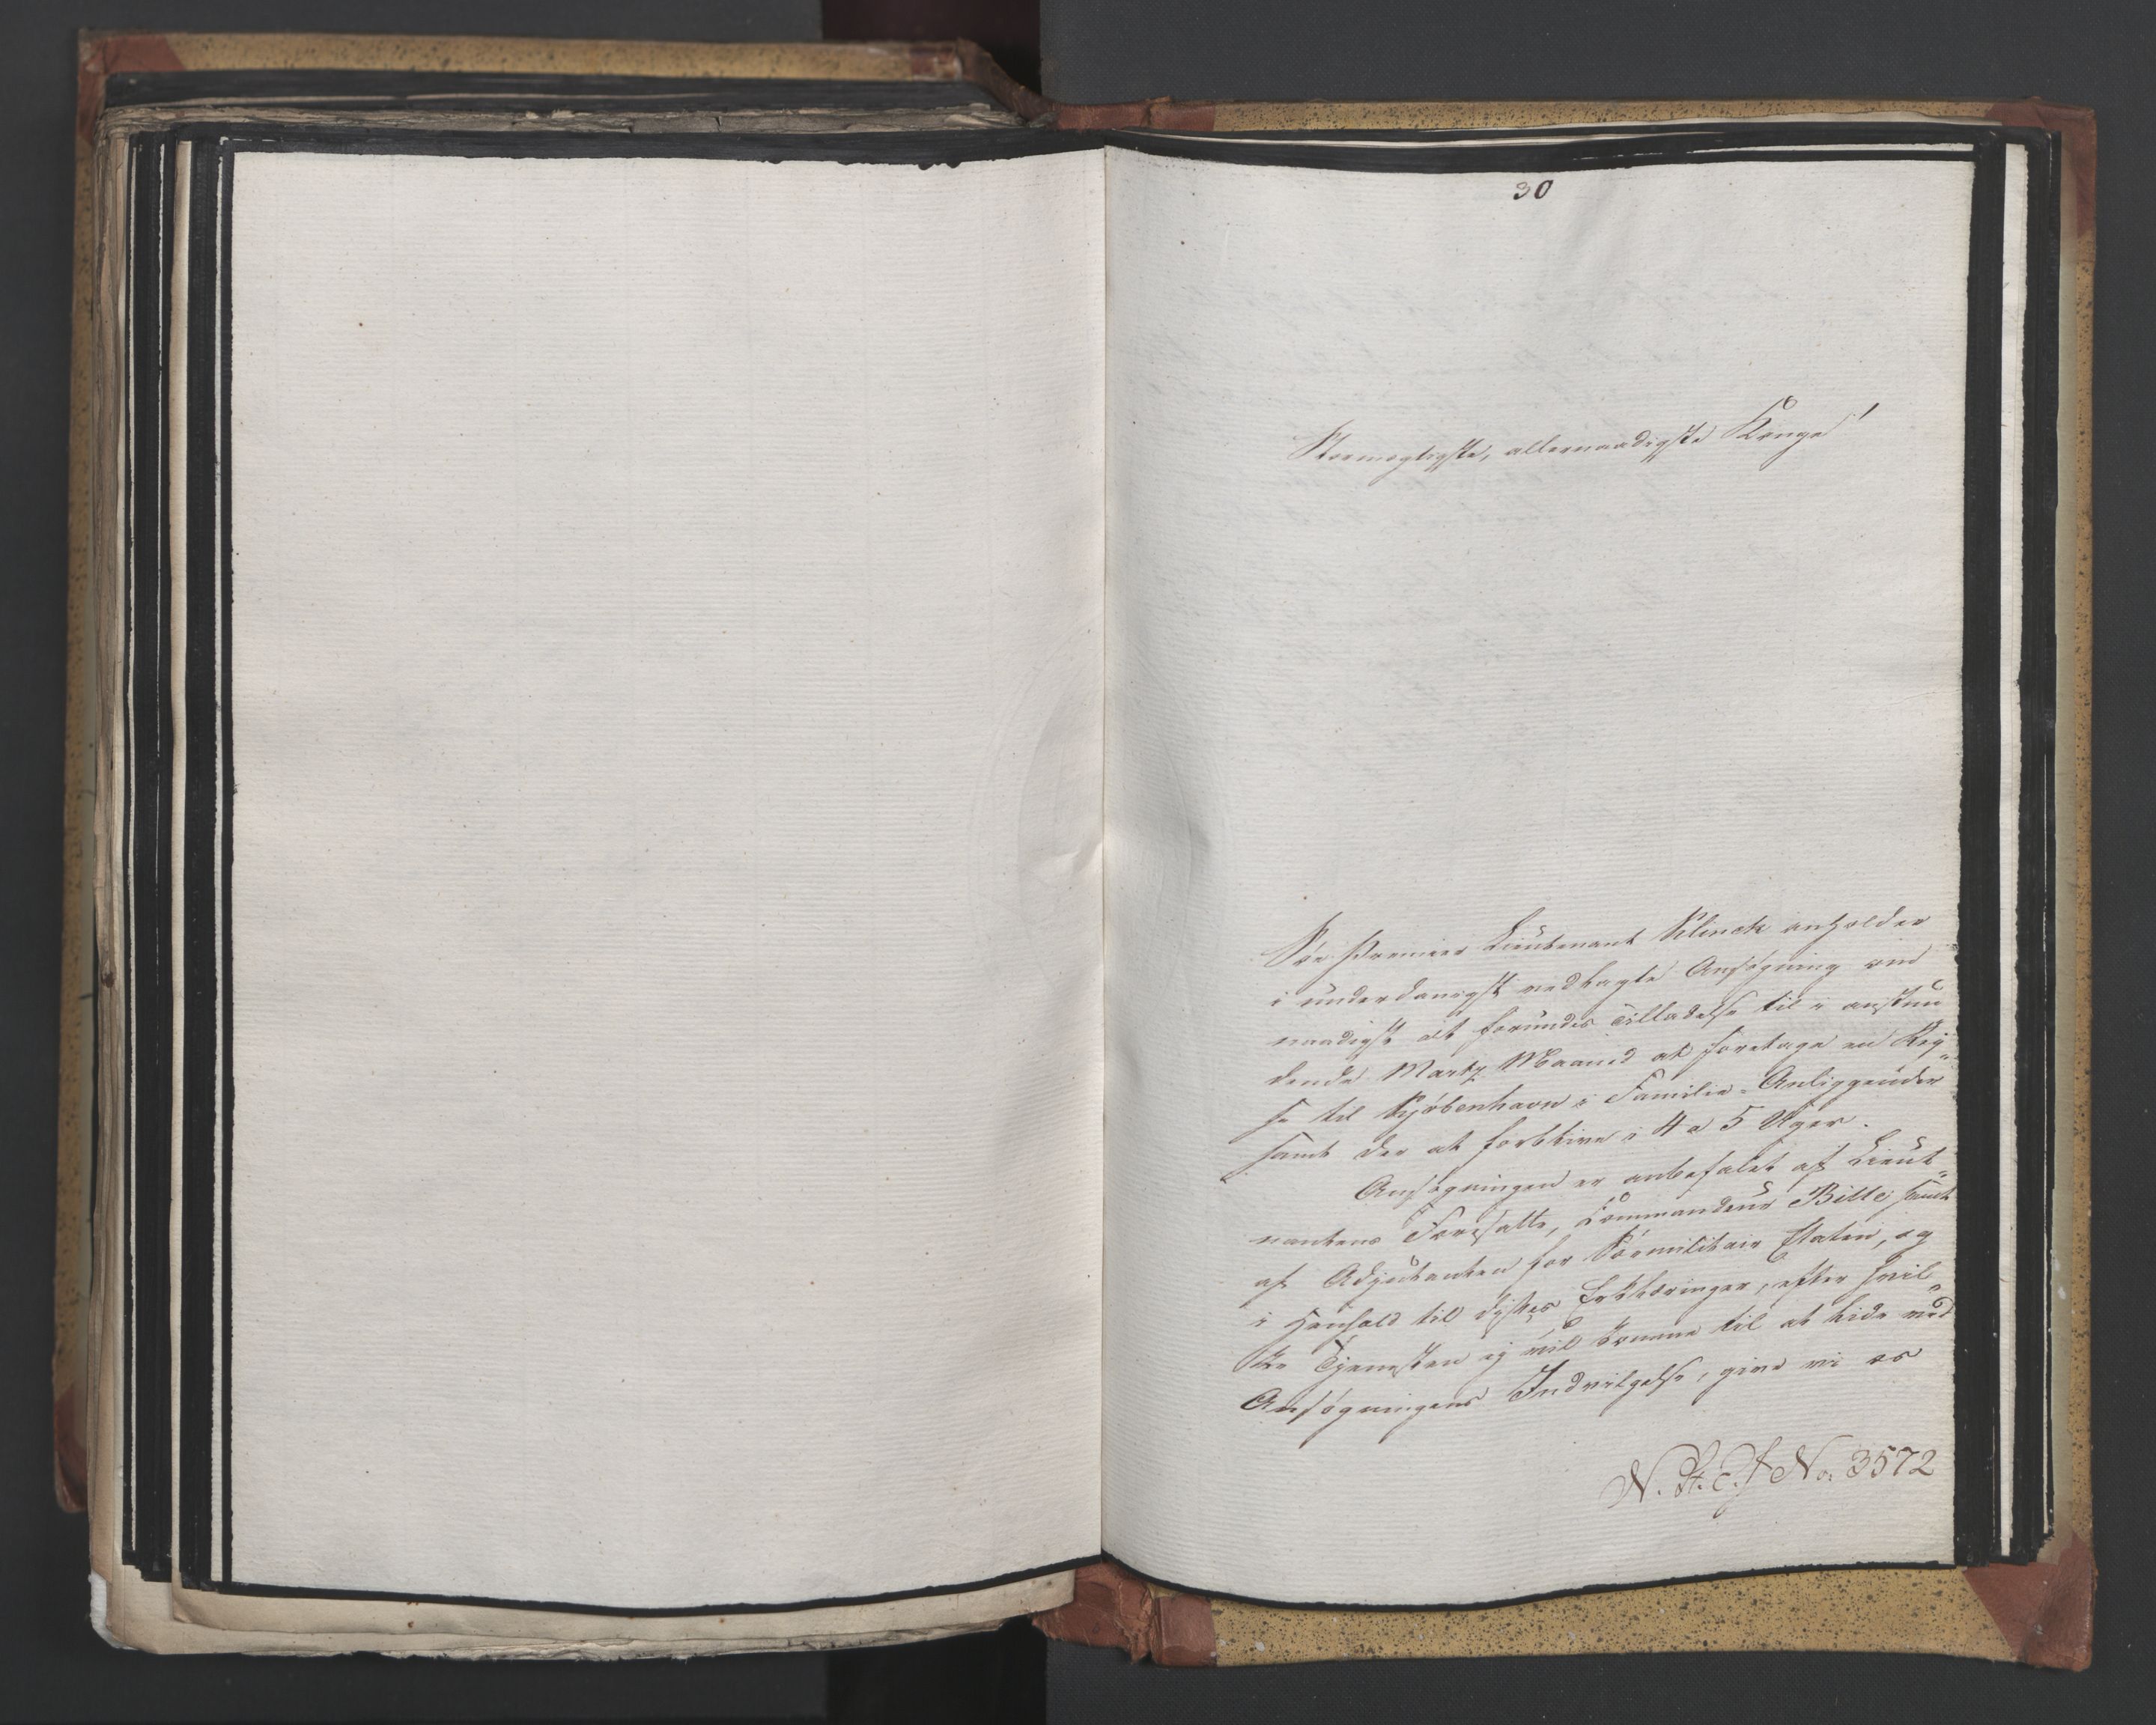 30
Stormægtigste, allernaadigste Konge!
Søe-Premier Lieutenant Klinck anholder
i underdanigst vedlagte Ansøgning om
naadigst at forundes Tilladelse til i anstun
dende Martz Maaned at foretage en Rej-
se til Kjøbenhavn i Familie-Anliggender
samt der at forblive i 4 a 5 Uger.
Ansøgningen er anbefalet af Lieut-
nantens Foresatte, Commandeur Bille samt
af Adjutanten for Søemilitair Etaten, og
i Henhold til disses Erklæringer, efter hvil-
ke Tjenesten ej vil komme til at lide ved
Ansøgningens Indvilgelse, give vi os
No. 3572